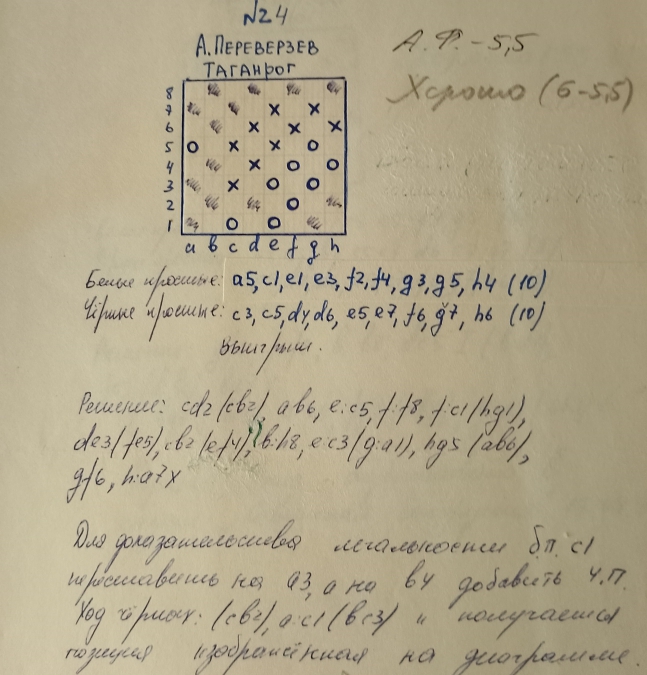 №24
А. ПЕРЕВЕРЗЕВ
ТАГАНРОГ
А.Ф. - 5,5
Хорошо (6-5,5)
8
7
6
5
4
3
2
1
a b c d e f g h
Белые простые: a5, c1, e1, e3, f2, f4, g3, g5, h4 (10)
Чёрные простые: c3, c5, d4, d6, e5, e7, f6, g7, h6 (10)
Выигрыш.
Решение: cd2 (cb2), ab6, e:c5, f:f8, f:c1 (hg1),
de3 (fe5), cb2 (ef4), b:h8, e:c3 (g:a1), hg5 (ab6),
gf6, h:a7x
Для доказательства легальности б.п. c1
переставить на a3, а на b4 добавить ч.п.
Ход чёрных: (cb2), a:c1 (bc3) и получается
позиция изображённая на диаграмме.